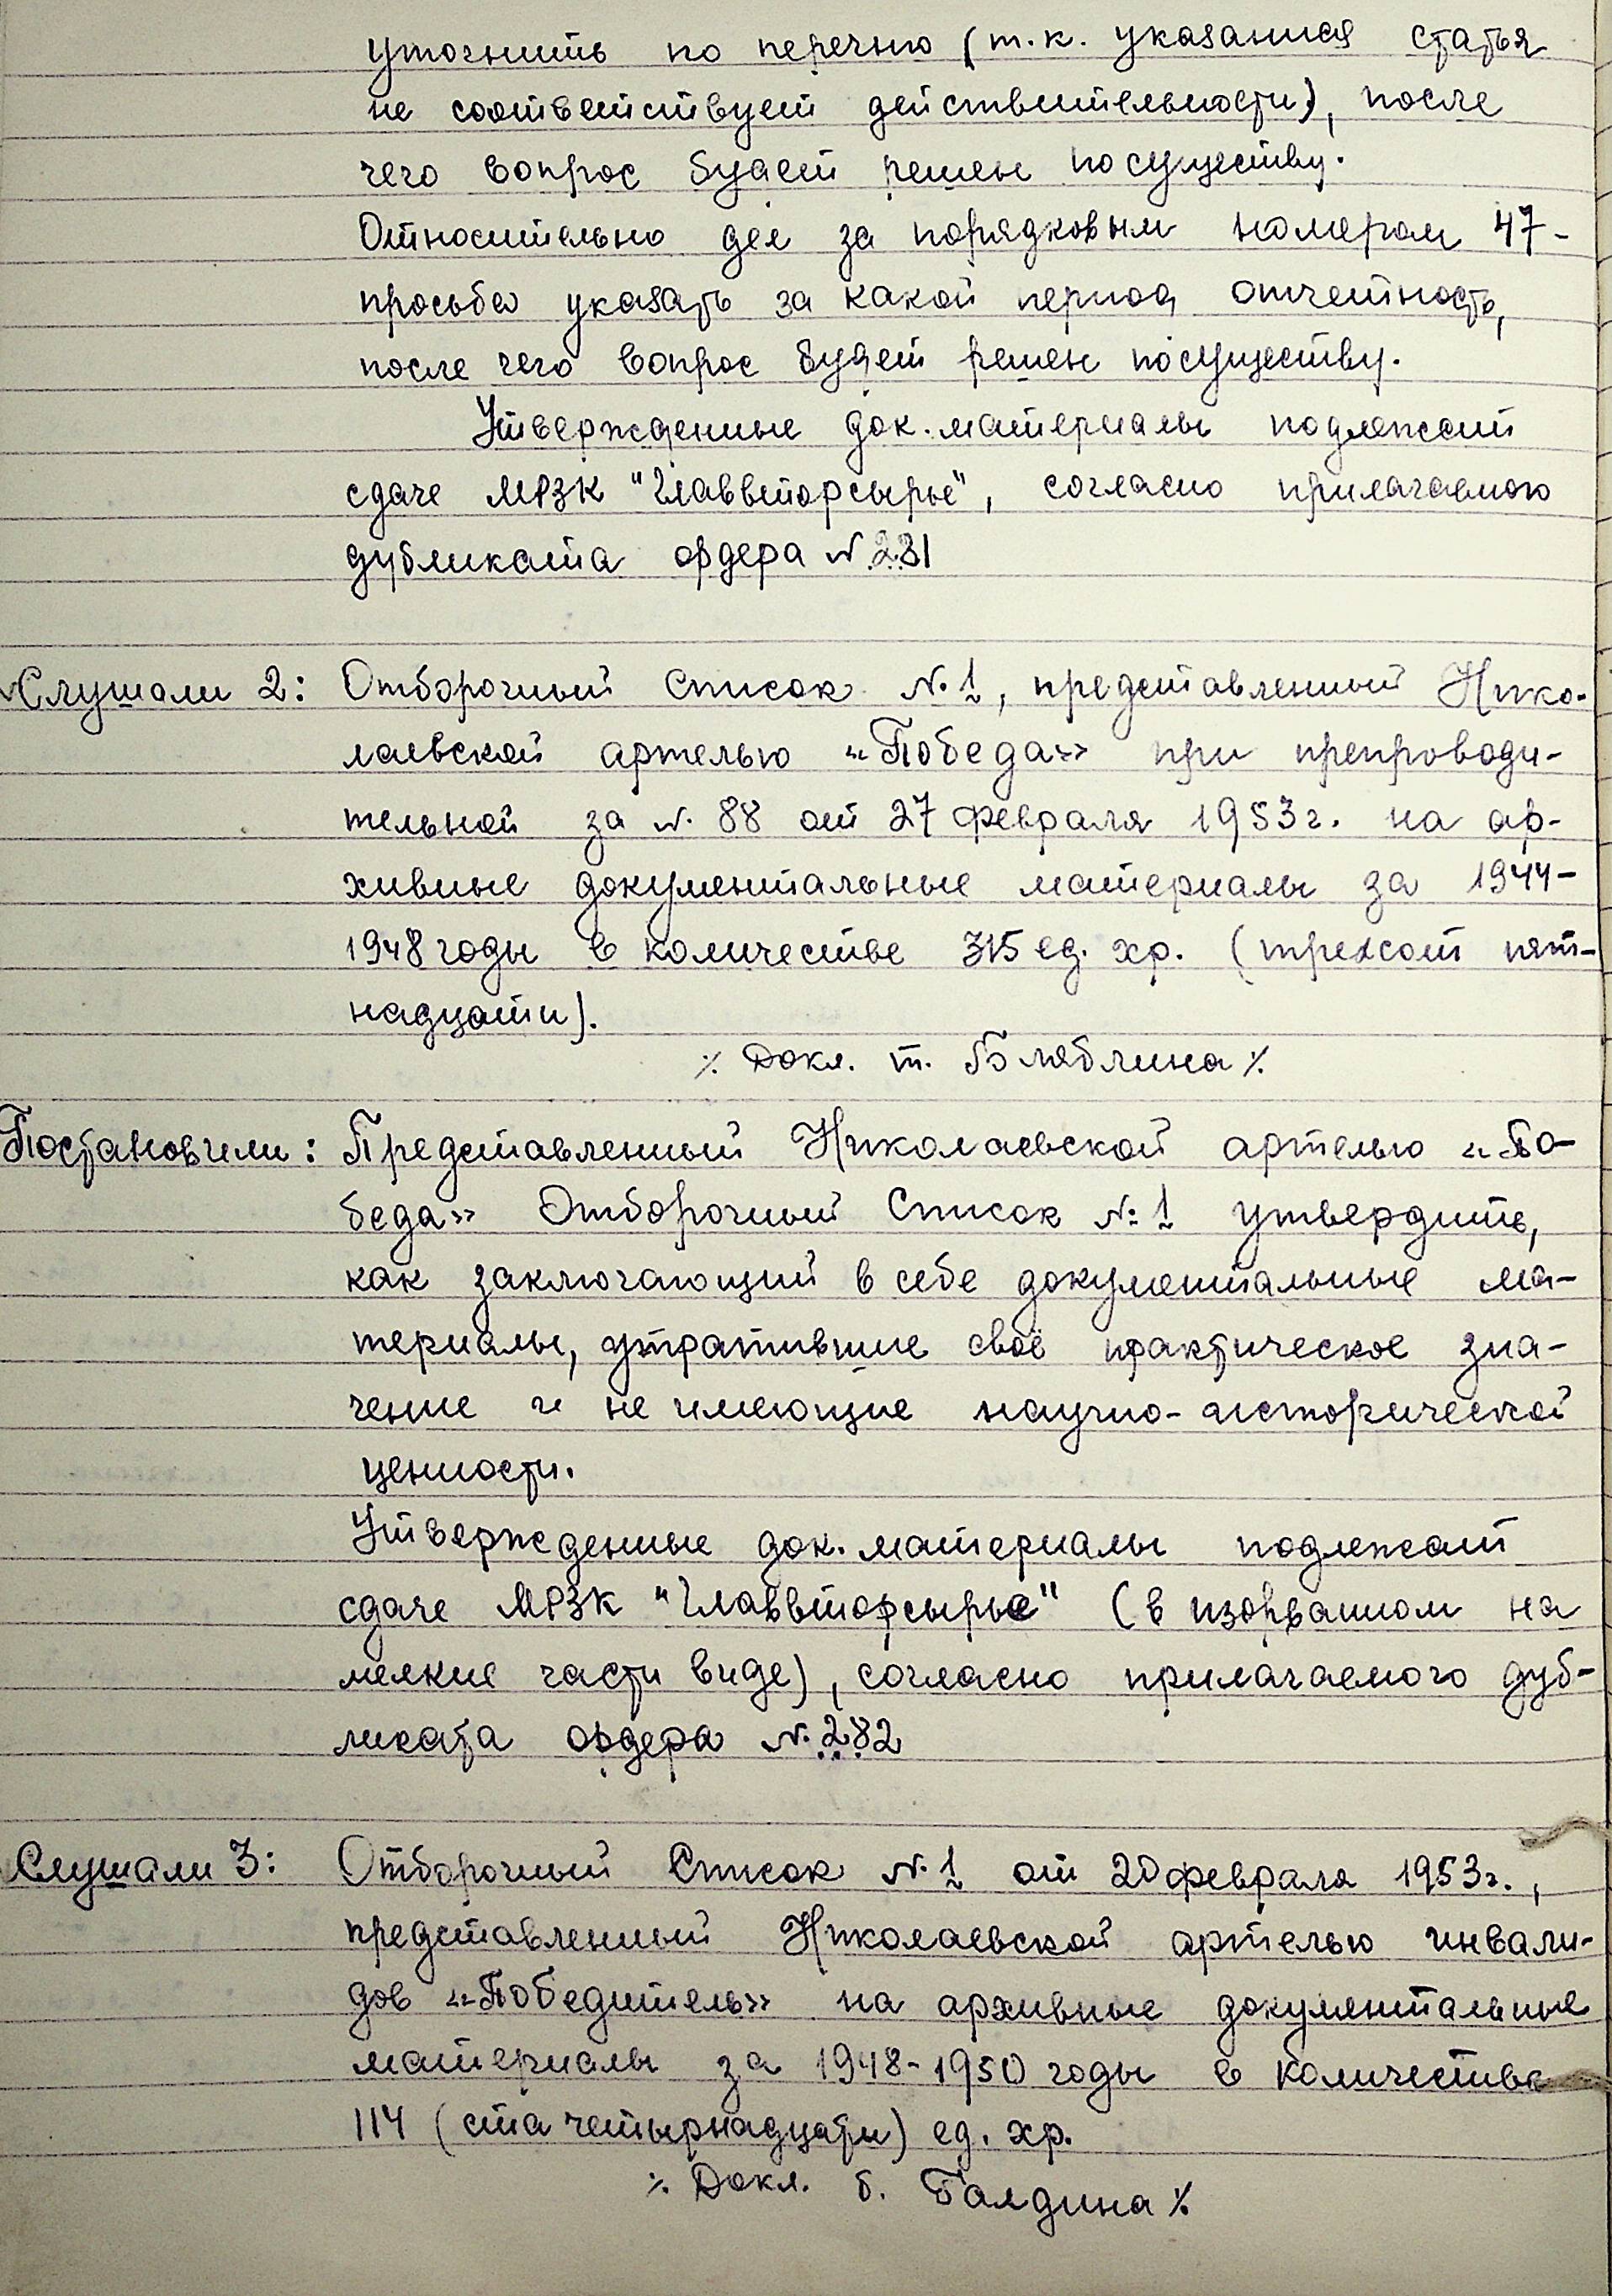 уточнить по перечню (т.к. указанная статья
не соответствует действительности), после
чего вопрос будет решен по существу.
Относительно дел за порядковым номером 47-
просьба указать за какой период отчетность,
после чего вопрос будет решен по существу.
Утвержденные док. материалы подлежат
сдаче МРЗК "Главвторсырье", согласно прилагаемого
дубликата ордера № 281
Слушали 2: Отборочный Список № 1, представленный Нико-
лаевской артелью «Победа» при препроводи-
тельной за № 88 от 27 февраля 1953г. на ар-
хивные документальные материалы за 1944-
1948 годы в количестве 315 ед. хр. (трехсот пят-
надцати).
٪ Докл. т. Блябина ٪
Постановили: Представленный Николаевской артелью «По-
беда» Отборочный Список № 1 утвердить,
как заключающий в себе документальные ма-
териалы, утратившие своё практическое зна-
чение и не имеющие научно-исторической
ценности.
Утвержденные док. материалы подлежат
сдаче МРЗК "Главвторсырье" (в изорванном на
мелкие части виде), согласно прилагаемого дуб-
ликата ордера № 282
Слушали 3: Отборочный Список № 1 от 20 февраля 1953г.,
представленный Николаевской артелью инвали-
дов «Победитель» на архивные документальные
материалы за 1948-1950 годы в количестве
114 (ста четырнадцати) ед. хр.
٪ Докл. т. Балдина ٪